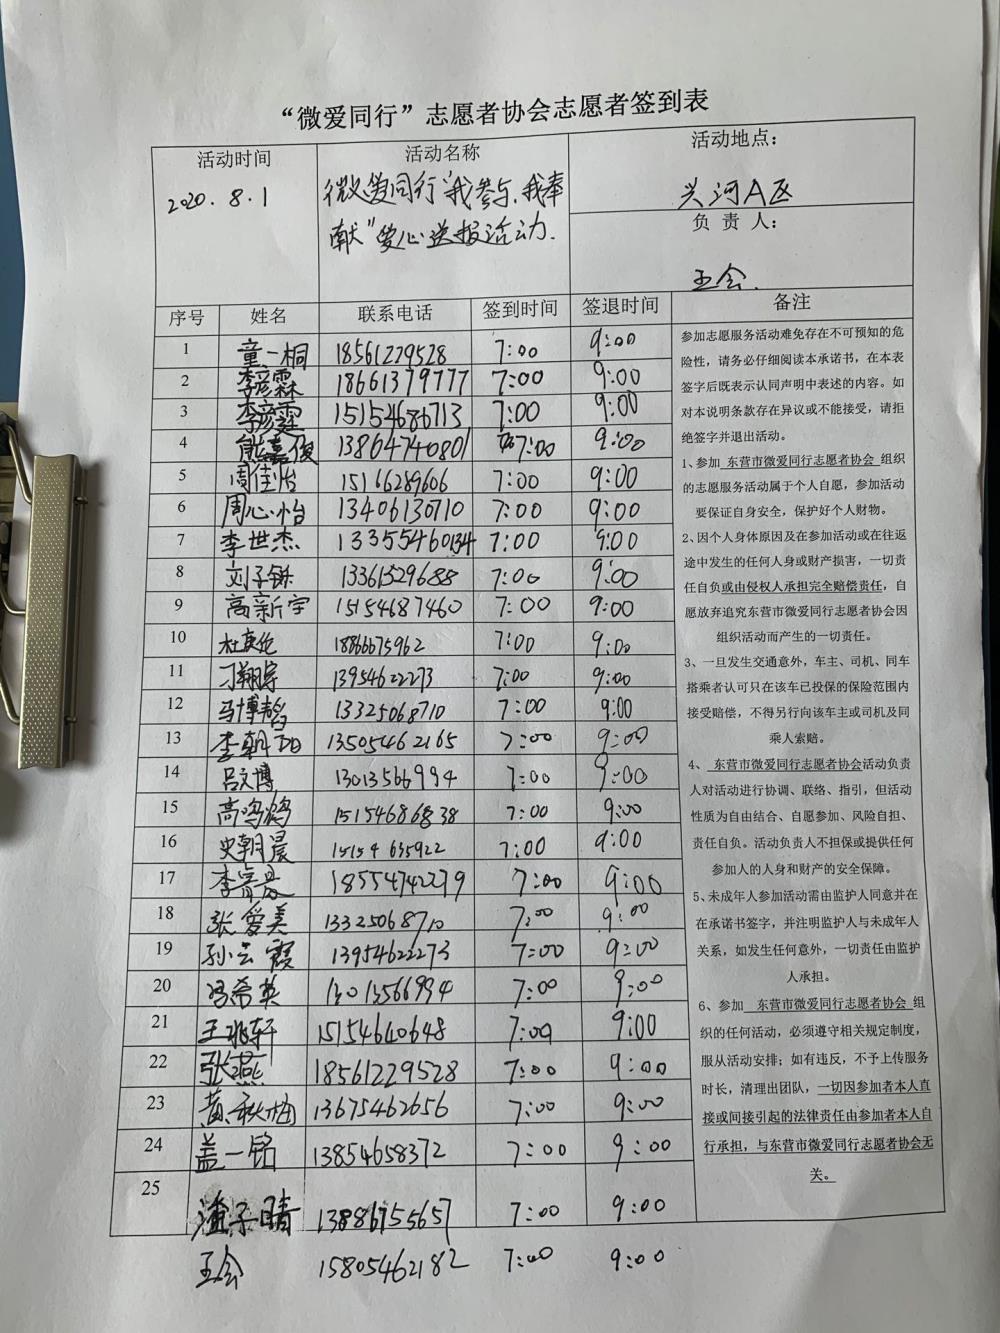 “微爱同行”志愿者协会志愿者签到表
活动时间 活动名称 活动地点：
2020.8.1 微爱同行“我参与、我奉 兴河A区
献”爱心送报活动. 负 责 人：
王会.
序号 姓名 联系电话 签到时间 签退时间 备注
1 童一桐 18561229528 7:00 9:00
2 李彦霖 18661379777 7:00 9:00
3 李彦霆 15154686713 7:00 9:00
4 熊嘉俊 13864740801 7:00 9:00
5 周佳怡 15166289606 7:00 9:00
6 周心怡 13406130710 7:00 9:00
7 李世杰 13355460134 7:00 9:00
8 刘子铄 13361529688 7:00 9:00
9 高新宇 15154687460 7:00 9:00
10 杜庚伦 18866675962 7:00 9:00
11 刁翔宇 13954622273 7:00 9:00
12 马博韬 13325068710 7:00 9:00
13 李朝阳 13505462165 7:00 9:00
14 吕文博 13013566994 7:00 9:00
15 高鸣鸿 15154686838 7:00 9:00
16 史朝晨 15154635922 7:00 9:00
17 李 18554742279 7:00 9:00
18 张爱美 13325068710 7:00 9:00
19 孙云霞 13954622273 7:00 9:00
20 冯希英 13013566994 7:00 9:00
21 王兆轩 15154640648 7:00 9:00
22 张燕 18561229528 7:00 9:00
23 黄秋梅 13675462656 7:00 9:00
24 盖一铭 13854658372 7:00 9:00
25 潘子晴 13886755657 7:00 9:00
王会 15805462182 7:00 9:00
参加志愿服务活动难免存在不可预知的危
险性，请务必仔细阅读本承诺书，在本表
签字后既表示认同声明中表述的内容。如
对本说明条款存在异议或不能接受，请拒
绝签字并退出活动。
1、参加 东营市微爱同行志愿者协会 组织
的志愿服务活动属于个人自愿，参加活动
要保证自身安全，保护好个人财物。
2、因个人身体原因及在参加活动或在往返
途中发生的任何人身或财产损害，一切责
任自负或由侵权人承担完全赔偿责任，自
愿放弃追究东营市微爱同行志愿者协会因
组织活动而产生的一切责任。
3、一旦发生交通意外，车主、司机、同车
搭乘者认可只在该车已投保的保险范围内
接受赔偿，不得另行向该车主或司机及同
乘人索赔。
4、 东营市微爱同行志愿者协会活动负责
人对活动进行协调、联络、指引，但活动
性质为自由结合、自愿参加、风险自担、
责任自负。活动负责人不担保或提供任何
参加人的人身和财产的安全保障。
5、未成年人参加活动需由监护人同意并在
在承诺书签字，并注明监护人与未成年人
关系，如发生任何意外，一切责任由监护
人承担。
6、参加 东营市微爱同行志愿者协会 组
织的任何活动，必须遵守相关规定制度，
服从活动安排；如有违反，不予上传服务
时长，清理出团队，一切因参加者本人直
接或间接引起的法律责任由参加者本人自
行承担，与东营市微爱同行志愿者协会无
关。